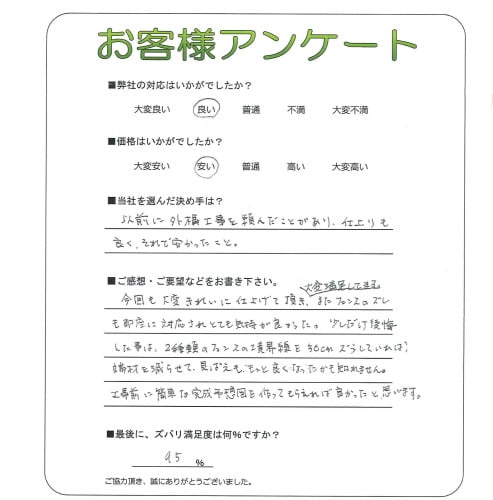 お客様アンケート
■弊社の対応はいかがでしたか？
大変良い 良い 普通 不満 大変不満
■価格はいかがでしたか？
大変安い 安い 普通 高い 大変高い
■当社を選んだ決め手は？
以前に外構工事を頼んだことがあり、仕上りも
良く、それで安かったこと。
■ご感想・ご要望などをお書き下さい。
大変満足してます。
今回も大変きれいに仕上げて頂き、またフェンスのズレ
も即座に対応されとても気持が良かった。少しだけ後悔
した事は、2種類のフェンスの境界線を50cmずらしていれば、
端材を減らせて、見ばえも、もっと良くなったかも知れません。
工事前に簡単な完成予想図を作ってもらえれば良かったと思います。
■最後に、ズバリ満足度は何%ですか？
95 %
ご協力頂き、誠にありがとうございました。